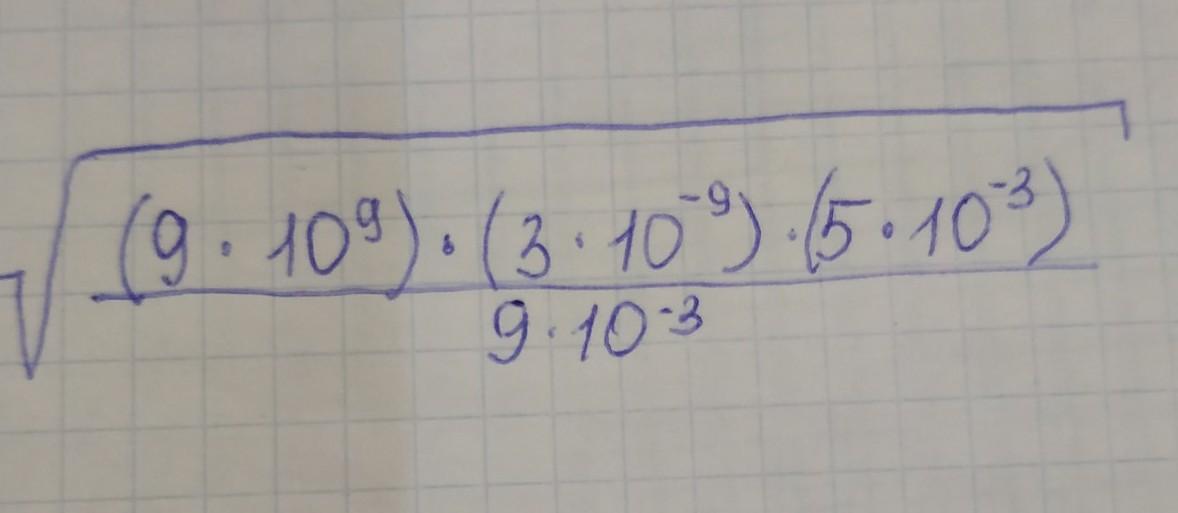 √ (9 · 10⁹) · (3 · 10⁻⁹) · (5 · 10⁻³)
9 · 10⁻³